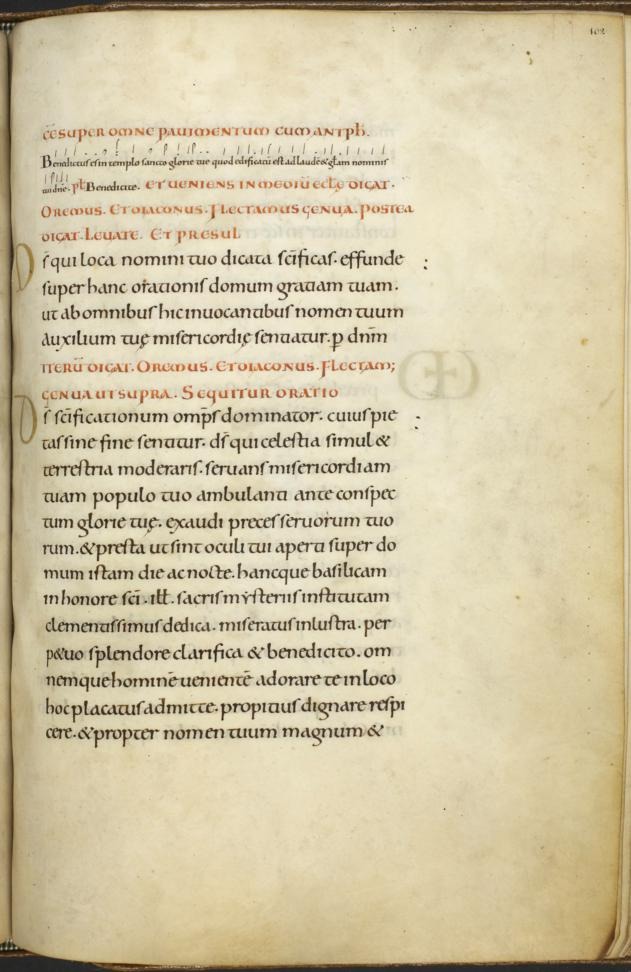 102
cēsuper omne pauimentum cum antph.
Benedictus es in templo sancto glorie tue quod edificatū est ad laudē & glam nominis
tui dne. ps Benedicite. et ueniens in mediū eclę dicat.
Oremus. Et diaconus. Flectamus genua. Postea
dicat. Leuate. Et presul
Ds qui loca nomini tuo dicata scificas. effunde
super hanc orationis domum gratiam tuam.
ut ab omnibus hic inuocantibus nomen tuum
auxilium tuę misericordię sentiatur. p dnm
Iterū dicat. Oremus. Et diaconus. Flectam;
genua ut supra. Sequitur oratio
Ds scificationum omps dominator. cuius pie
tas sine fine sentitur. ds qui celestia simul &
terrestria moderaris. seruans misericordiam
tuam populo tuo ambulanti ante conspec
tum glorie tuę. exaudi preces seruorum tuo
rum. & presta ut sint oculi tui aperti super do
mum istam die ac nocte. hancque basilicam
in honore sci. ill. sacris mysteriis institutam
clementissimus dedica. miseratus inlustra. per
p&uo splendore clarifica & benedicito. om
nemque hominē uenientē adorare te in loco
hoc placatus admitte. propitius dignare respi
cere. & propter nomen tuum magnum &